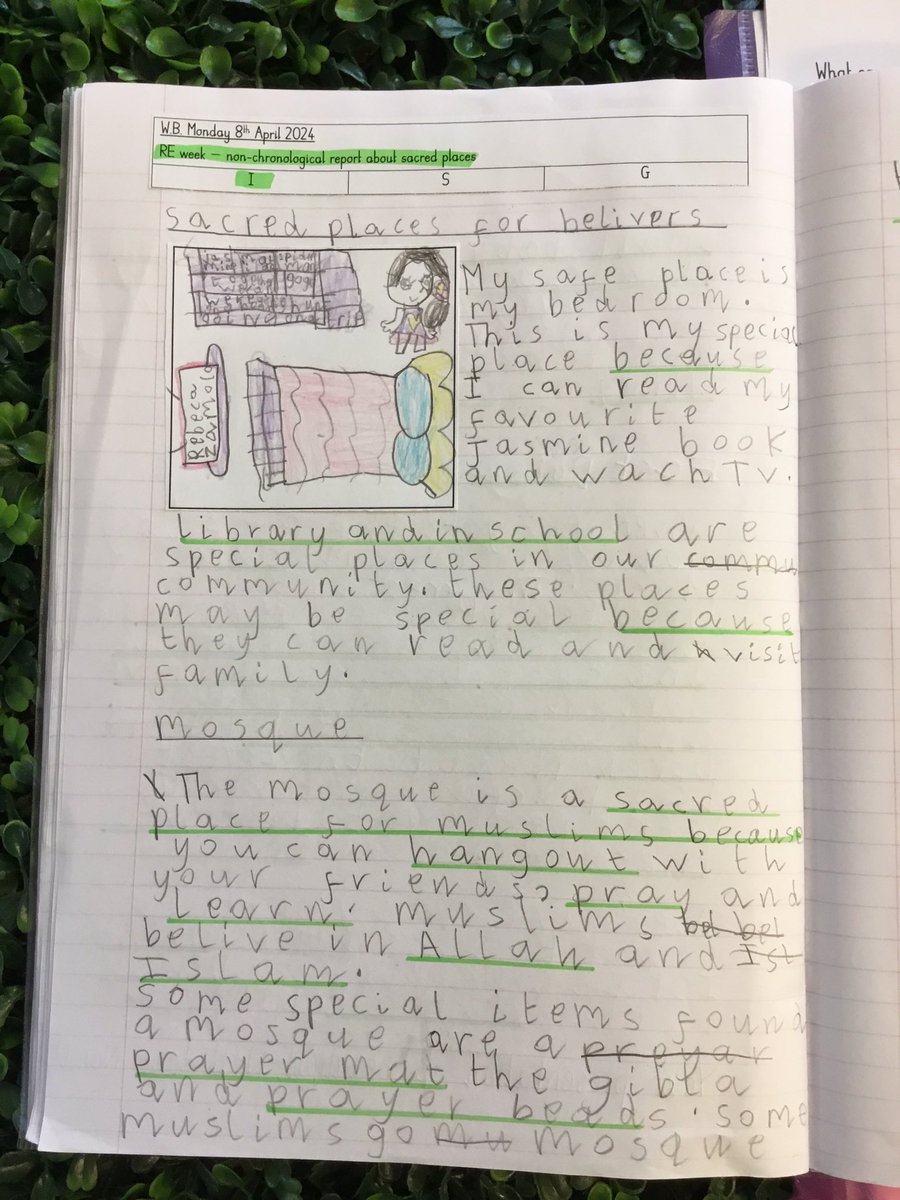 What
W.B. Monday 8th April 2024
RE week – non-chronological report about sacred places
I S G
Sacred places for belivers
Rebeca
My safe place is
my bedroom.
This is my special
place because
I can read my
favourite
Jasmine book
and wach TV.
Library and in school are
special places in our commu
community. these places
may be special because
they can read and visit
family.
Mosque
The mosque is a sacred
place for muslims because
you can hangout with
your friends, pray and
Learn. muslims be bel
belive in Allah and Ist
Islam.
Some special items found
a mosque are a preyar
prayer mat the gibla
and prayer beads. some
muslims go mu mosque